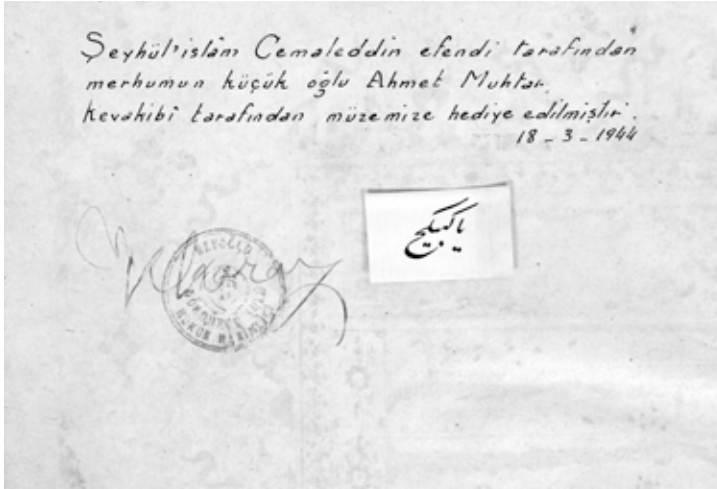 Şeyhül'islâm Cemaleddin efendi tarafından
merhumun küçük oğlu Ahmet Muhtar.
Kevakibî tarafından müzemize hediye edilmiştir.
18 - 3 - 1944
یا کبیکج